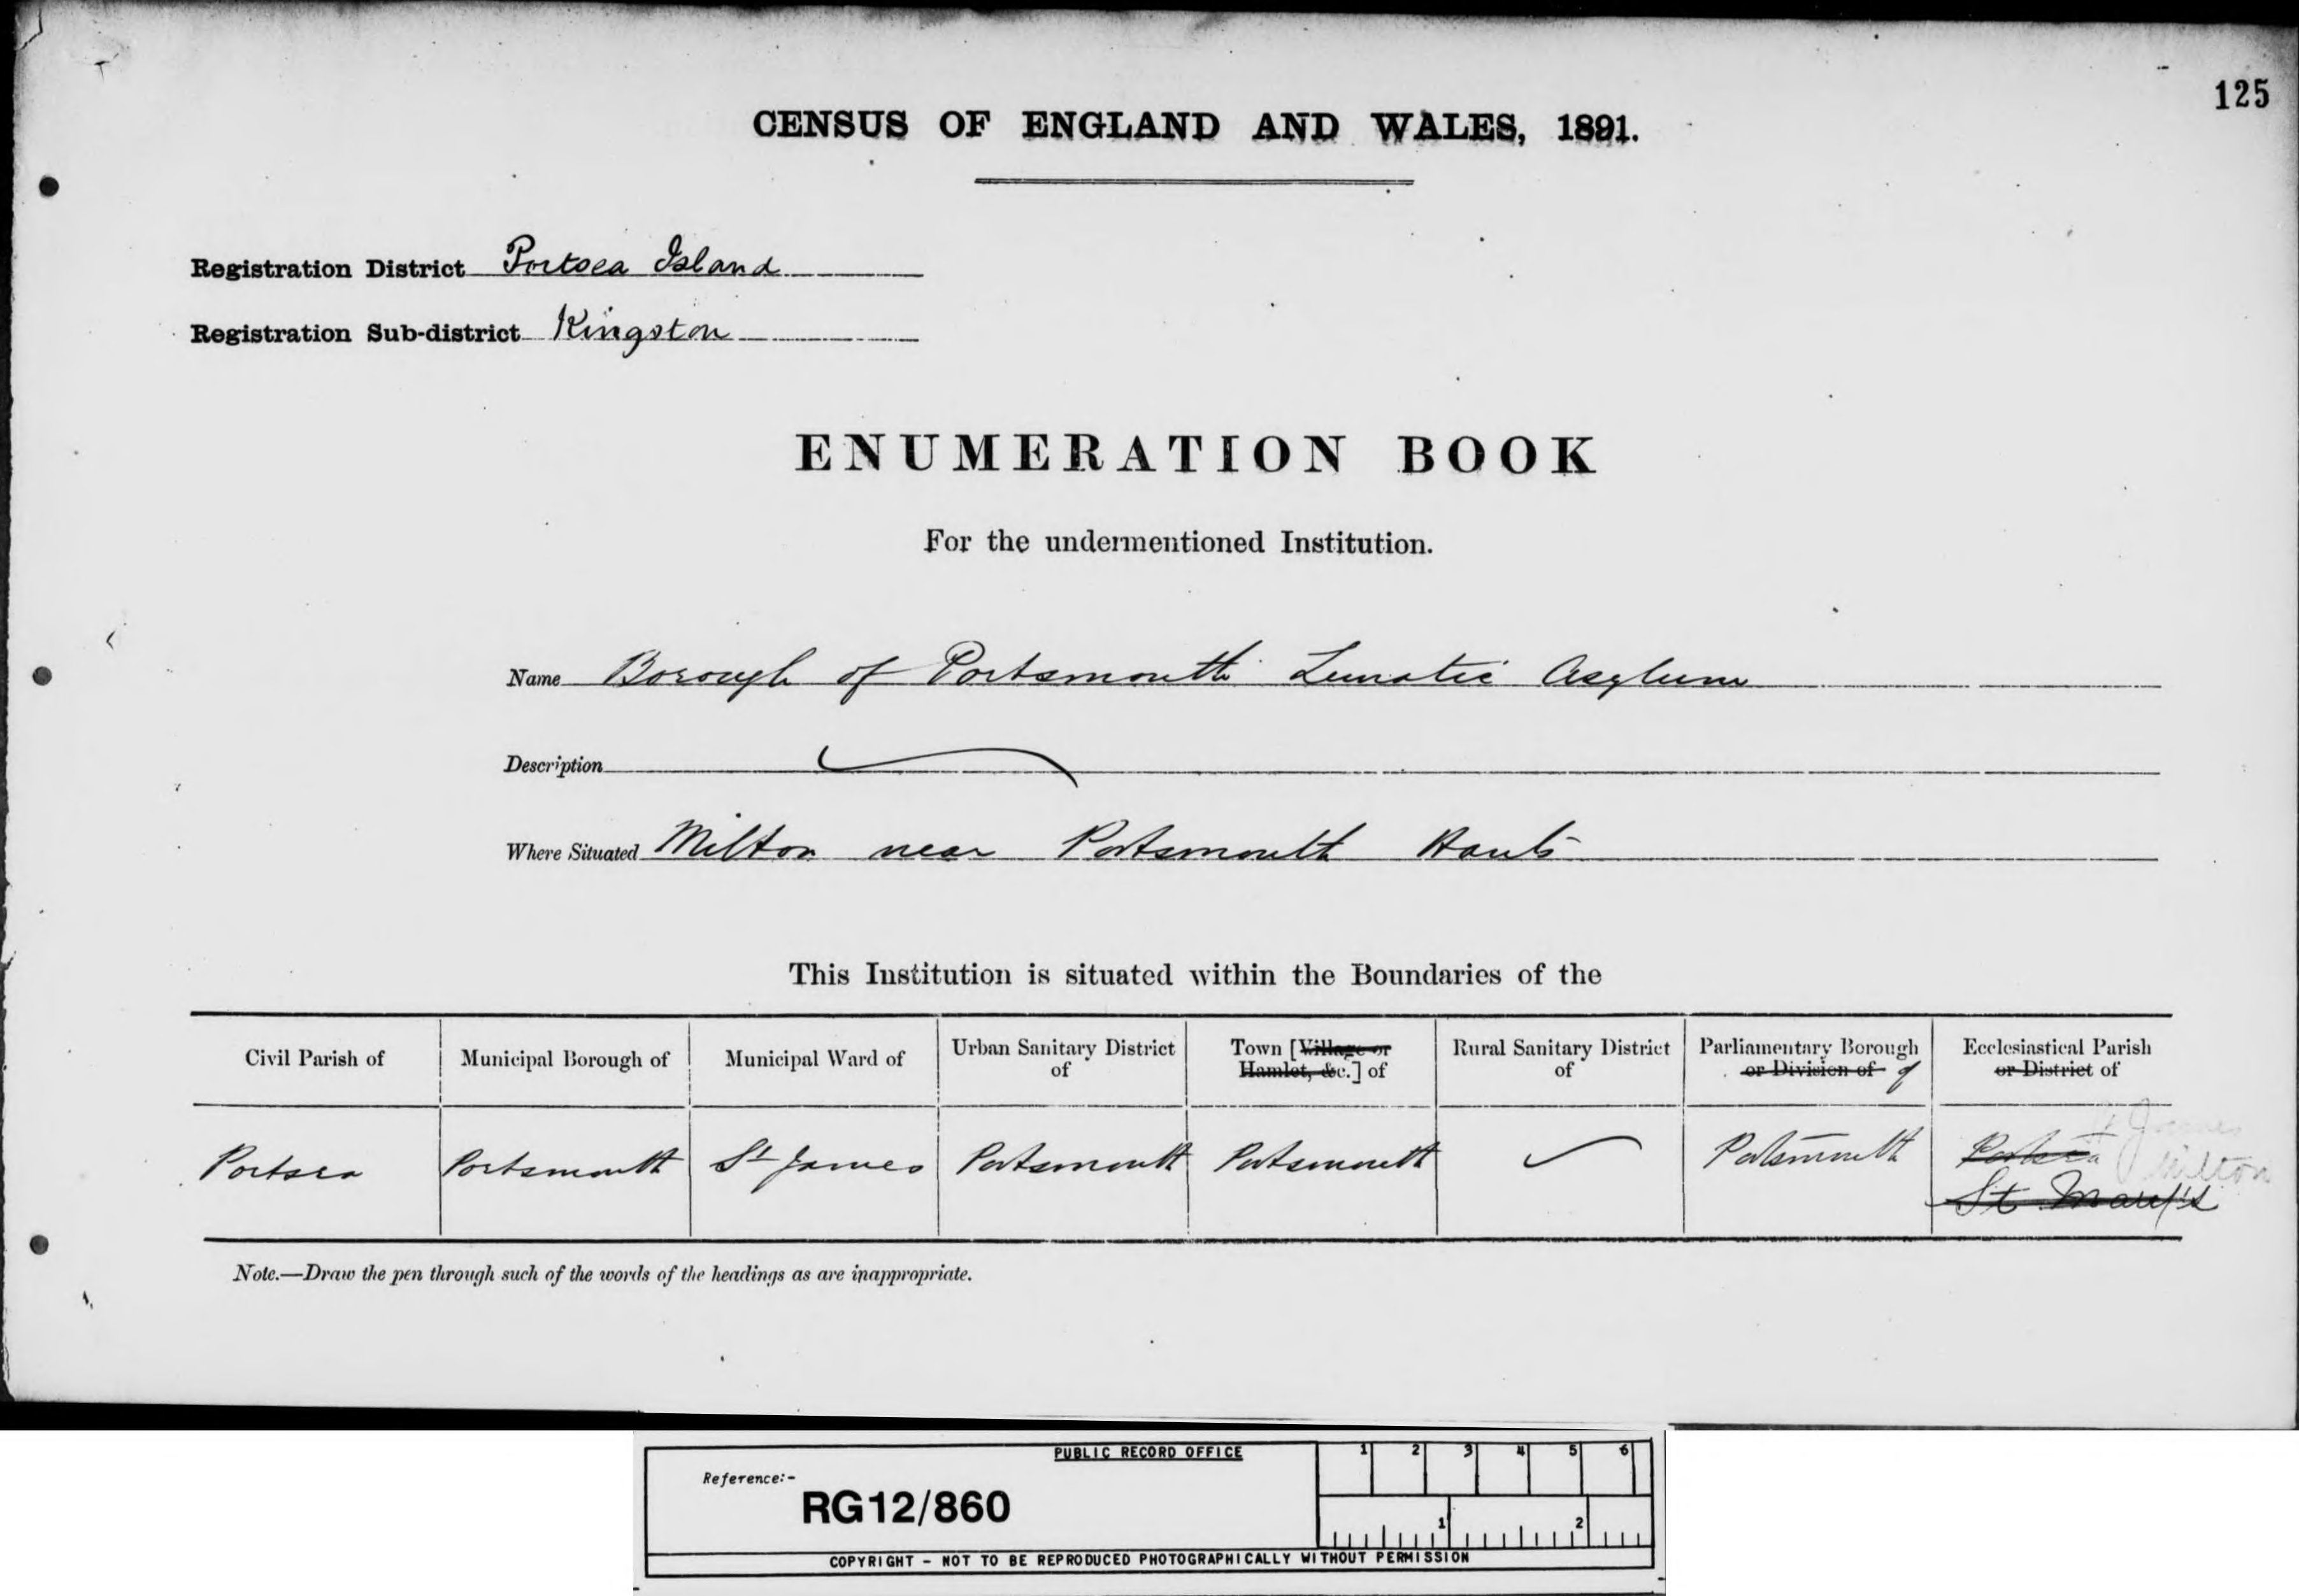 125
CENSUS OF ENGLAND AND WALES, 1891.
Registration District Portsea Island
Registration Sub-district Kingston
ENUMERATION BOOK
For the undermentioned Institution.
Name Borough of Portsmouth Lunatic Asylum
Description
Where Situated Milton near Portsmouth Hants
This Institution is situated within the Boundaries of the
Civil Parish of
Municipal Borough of
Municipal Ward of
Urban Sanitary District
of
Town [Village or
Hamlet, &c.] of
Rural Sanitary District
of
Parliamentary Borough
or Division of of
Ecclesiastical Parish
or District of
Portsea
Portsmouth
St James
Portsmouth
Portsmouth
Portsmouth
Portsea
St Mary's
James
Milton
Note.—Draw the pen through such of the words of the headings as are inappropriate.
PUBLIC RECORD OFFICE
Reference:-
RG12/860
1 2 3 4 5 6
1 2
COPYRIGHT - NOT TO BE REPRODUCED PHOTOGRAPHICALLY WITHOUT PERMISSION